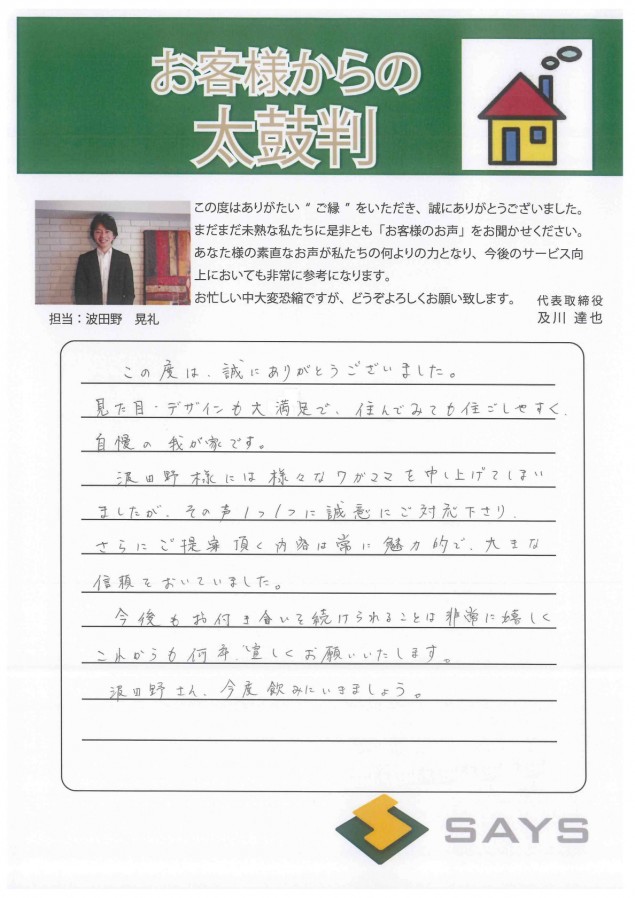 お客様からの
太鼓判
この度はありがたい〝ご縁〟をいただき、誠にありがとうございました。
まだまだ未熟な私たちに是非とも「お客様のお声」をお聞かせください。
あなた様の素直なお声が私たちの何よりの力となり、今後のサービス向
上においても非常に参考になります。
お忙しい中大変恐縮ですが、どうぞよろしくお願い致します。
代表取締役
及川 達也
担当:波田野 晃礼
この度は、誠にありがとうございました。
見た目・デザインも大満足で、住んでみても住ごしやすく、
自慢の我が家です。
波田野様には様々なワガママを申し上げてしまい
ましたが、その声1つ1つに誠意にご対応下さり、
さらにご提案頂く内容は常に魅力的で、大きな
信頼をおいていました。
今後もお付き合いを続けられることは非常に嬉しく
これからも何卒、宜しくお願いいたします。
波田野さん、今度飲みにいきましょう。
SAYS